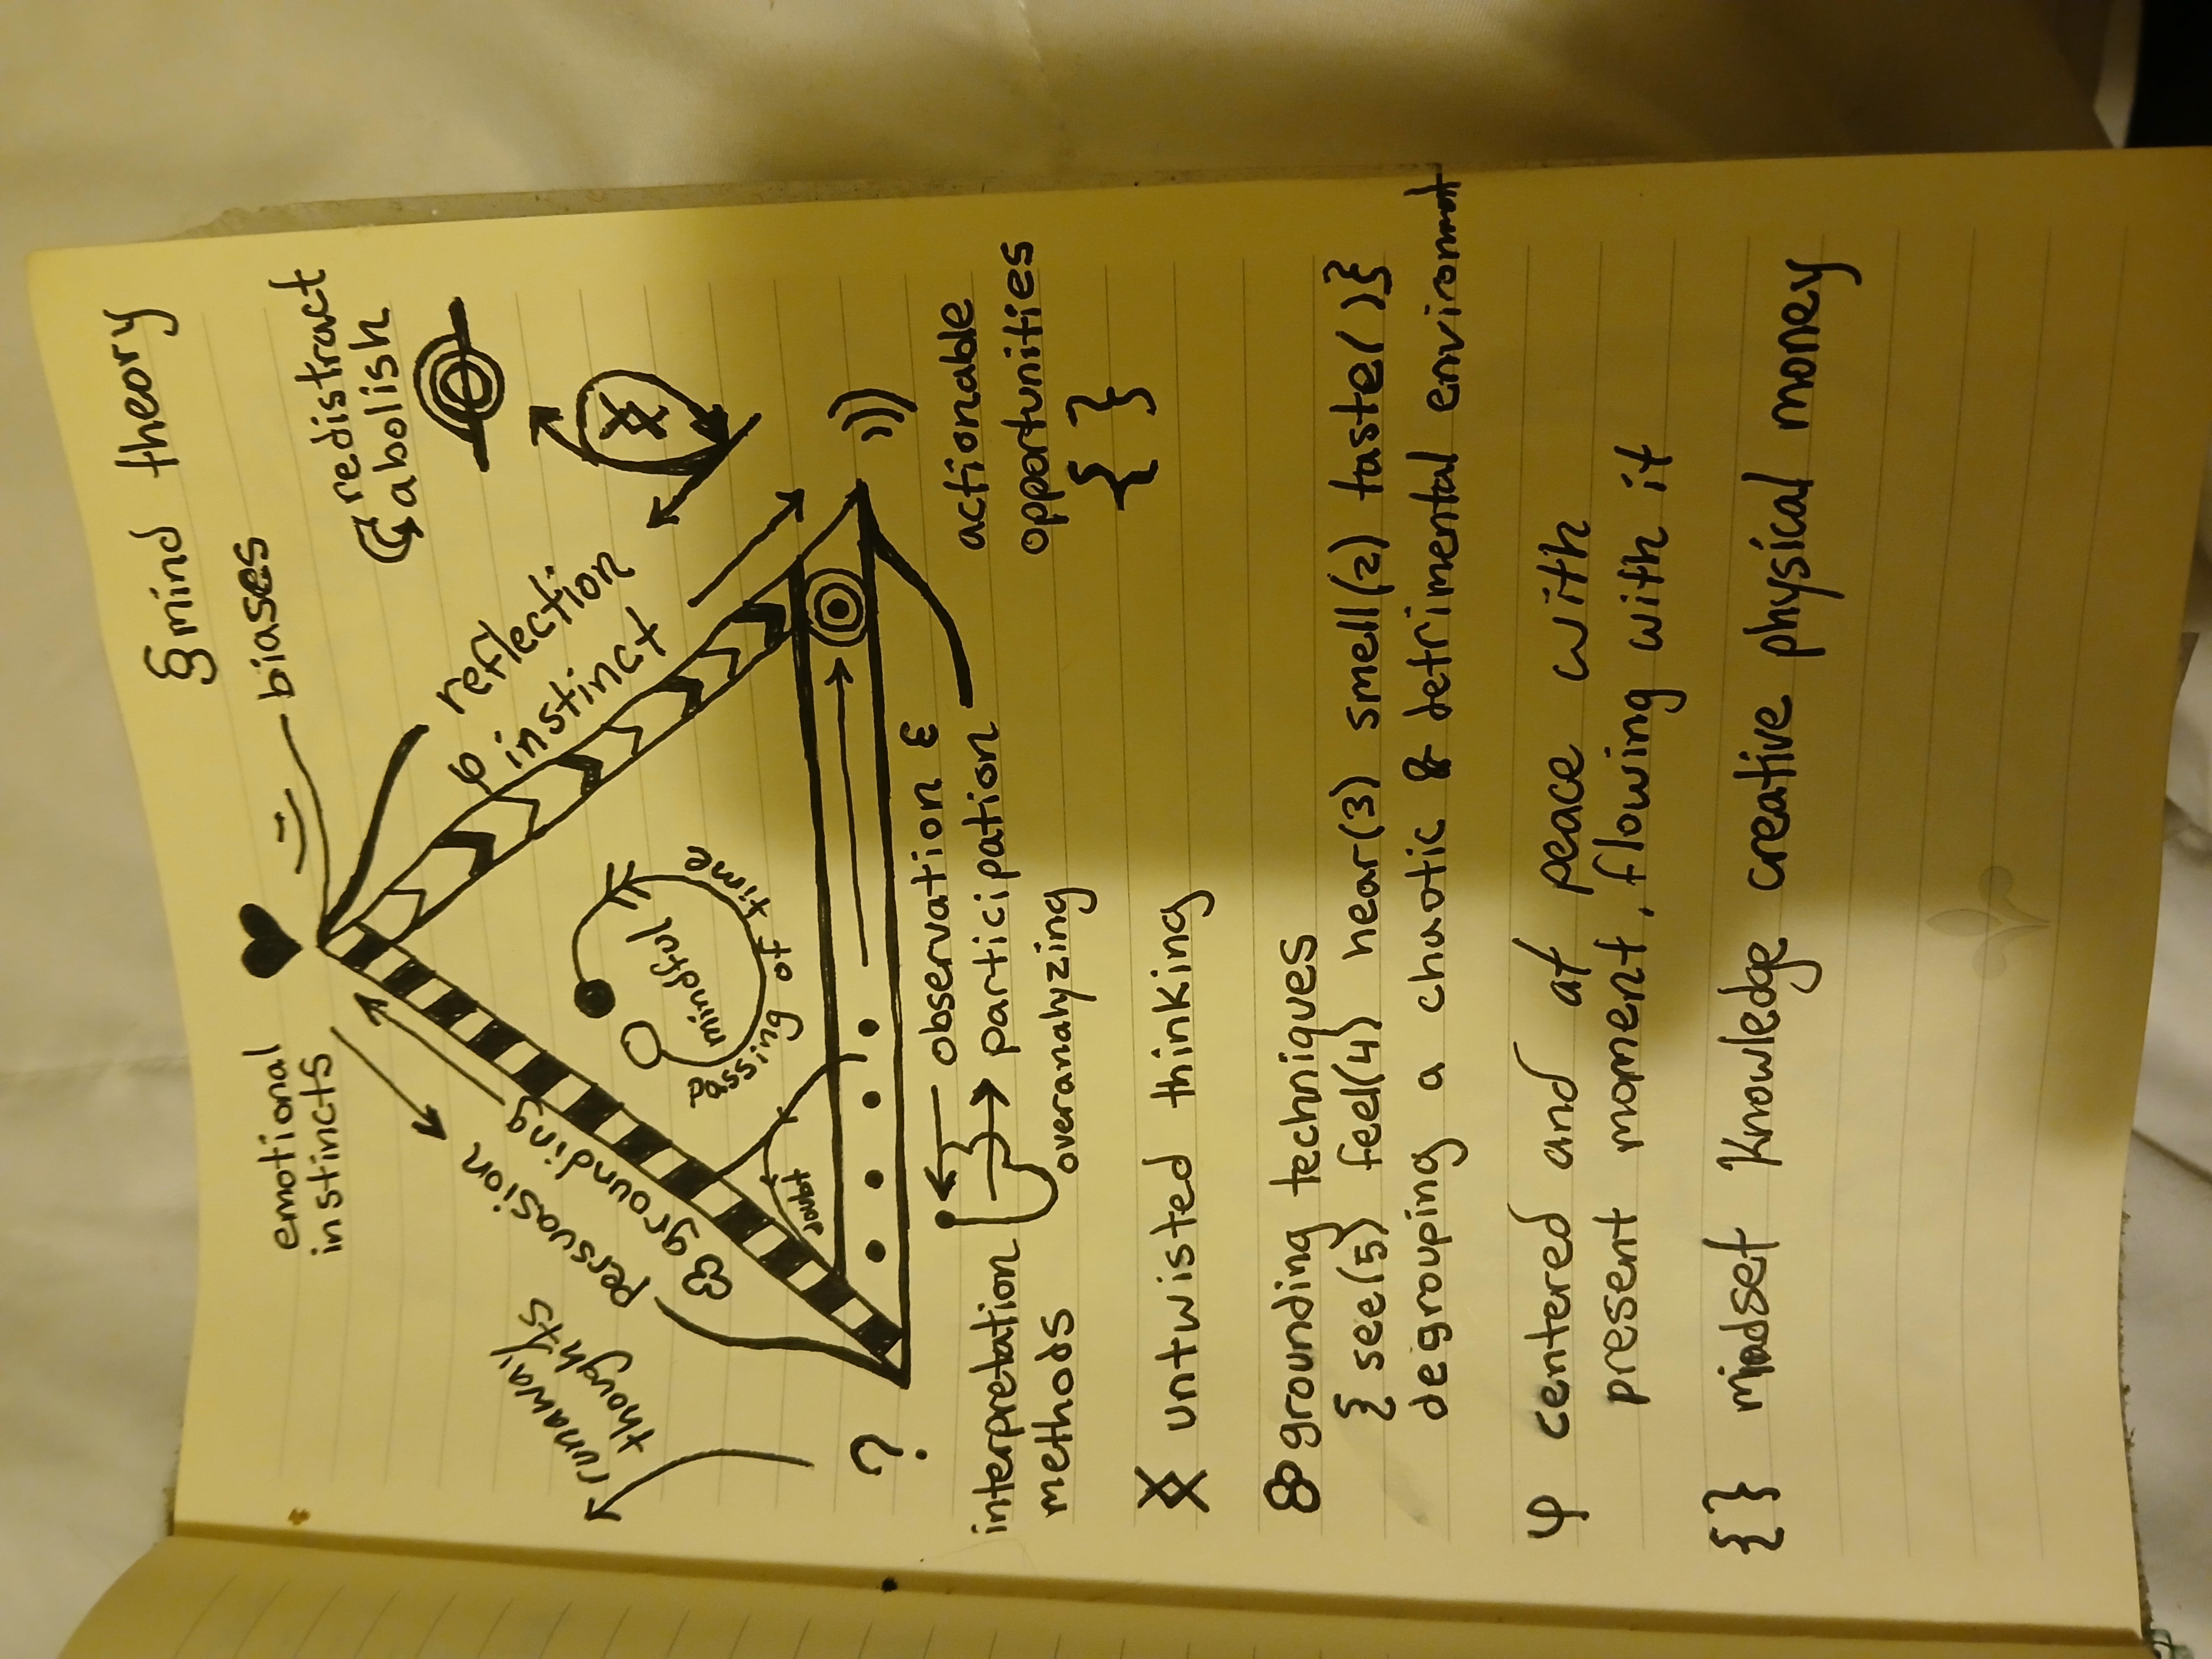 §mind theory
emotional
instincts
biases
redistract
abolish
runaway
thoughts
persuasion
grounding
φ instinct
reflection
mindful
passing of time
doubt
?
observation &
participation
overanalyzing
interpretation
methods
actionable
opportunities
{ }
untwisted thinking
grounding techniques
{ see(5) feel(4) hear(3) smell(2) taste( )}
degrouping a chaotic & detrimental environment
φ centered and at peace with
present moment, flowing with it
{ } mindset Knowledge creative physical money